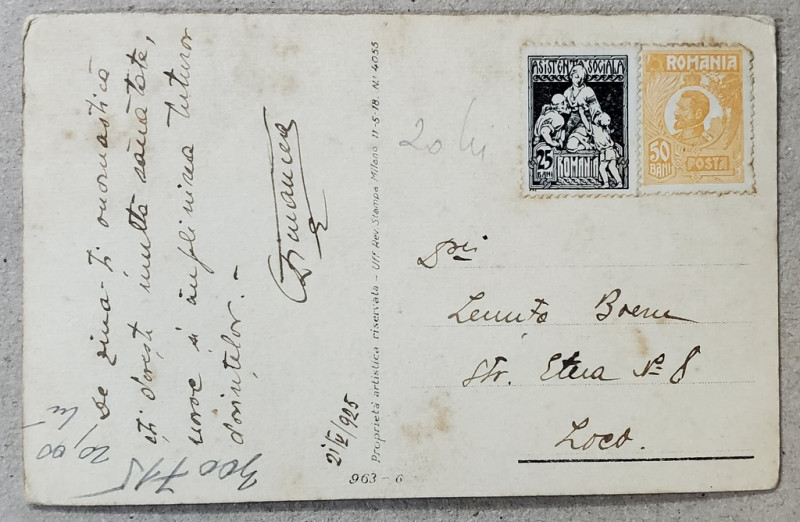 De ziua-ți onomastică
îți doresc multă sănătate,
noroc și împlinirea tuturor
dorințelor. -
21/V/925
Proprietà artistica riservata - Uff. Rev. Stampa Milano 11-5-18. N.° 4055
963-6
20 lei
ASISTENȚA SOCIALA
25
BANI
ROMANIA
ROMANIA
50
BANI
POSTA
D-rei
Lenuța
Str. Etna No 8
Loco.
20,00
lei